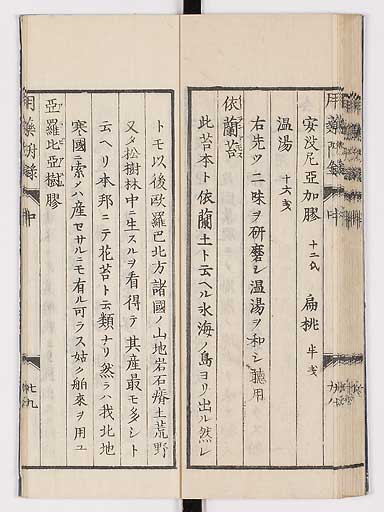 安没尼亞加膠 十二氏 扁桃 半戔
温湯 十六戔
右先ツ二味ヲ研磨シ温湯ヲ和シ聽用
依蘭苔
此苔本ト依蘭土ト云ヘル氷海ノ島ヨリ出ル然レ
トモ以後歐羅巴北方諸國ノ山地岩石瘠土荒野
又タ松樹林中ニ生スルヲ看得テ其産最モ多シト
云ヘリ本邦ニテ花苔ト云類ナリ然ラハ我北地
寒國ニ索ノハ産セサルニモ有ル可ラス姑ク舶來ヲ用ユ
亞羅比亞樹膠
用藥附録 中 廿九